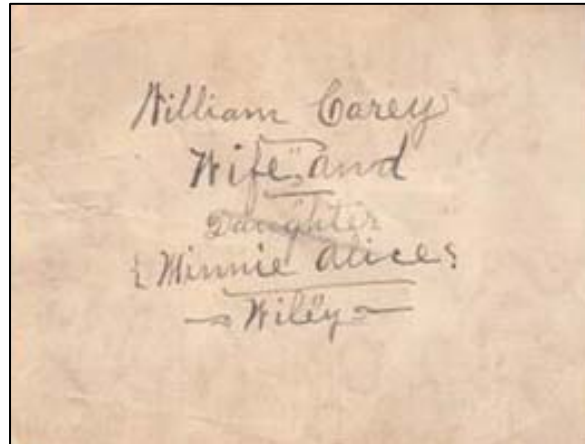 William Carey
Wife and
Daughter
Minnie Alice
Wiley